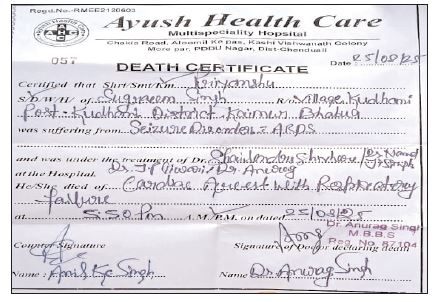 Regd.No.-RMEE2120603
Ayush Health Care
Multispeciality Hopsital
Chakia Road, Aloomil Ke pas, Kashi Vishwanath Colony
More par, PDDU Nagar, Dist-Chandauli
057
Date 25/08/25
DEATH CERTIFICATE
Certified that Shri/Smt/Km Priyanshu
S/D/W/H/ of Singh R/o Village Kudhani
Post- Kudhani District Kaimur Bhabua
was suffering from Seizure Disorder ARDS
and was under the treatment of Dr. Shailendra
Dr. Anurag
at the Hospital.
He/She died of Cardiac Arrest with Respiratory
failure
at 5:50 Pm A.M./P.M. on dated 25/08/25
Dr. Anurag Singh
M.B.B.S
Reg. No. 87104
Signature Signature of Doctor declaring death
Name : Singh Name : Dr. Anurag Singh